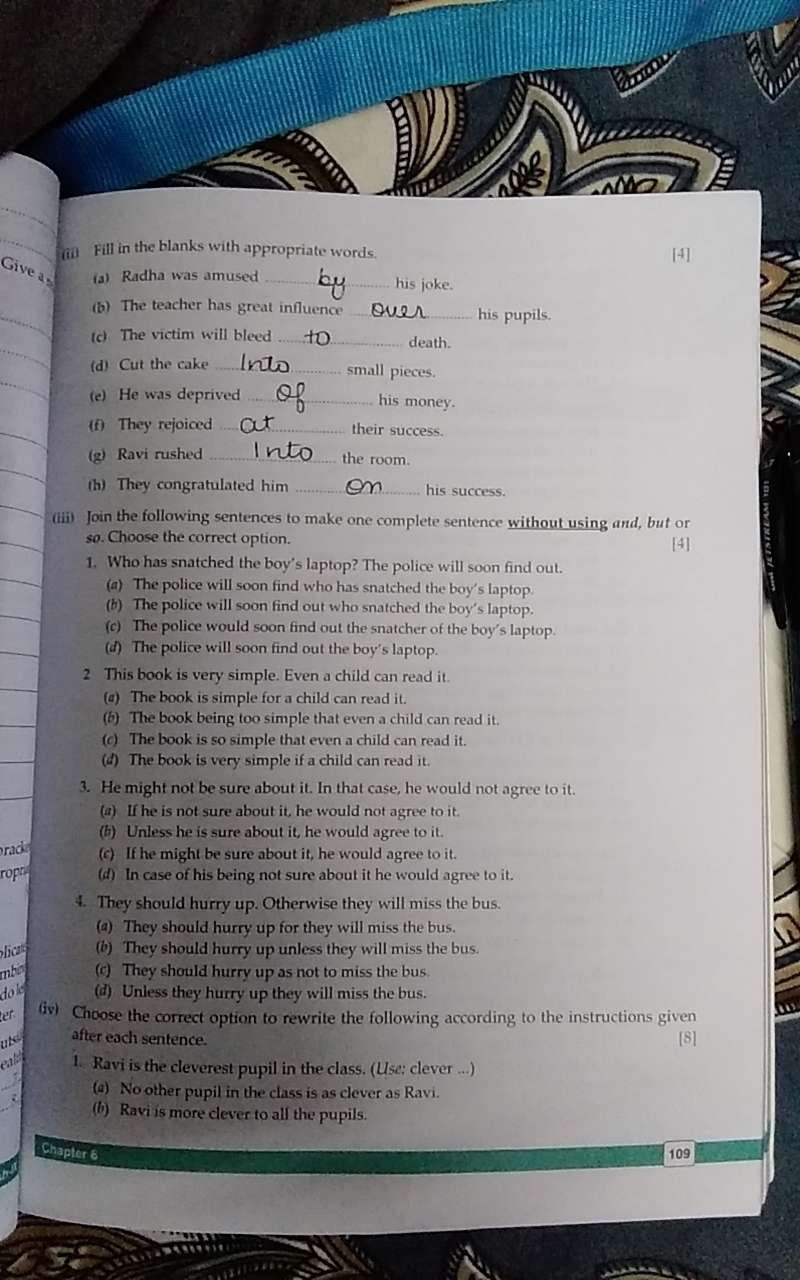 Give a
(ii) Fill in the blanks with appropriate words. [4]
(a) Radha was amused .......... by .......... his joke.
(b) The teacher has great influence .......... over .......... his pupils.
(c) The victim will bleed .......... to .......... death.
(d) Cut the cake .......... Into .......... small pieces.
(e) He was deprived .......... Of .......... his money.
(f) They rejoiced .......... at .......... their success.
(g) Ravi rushed .......... Into .......... the room.
(h) They congratulated him .......... on .......... his success.
(iii) Join the following sentences to make one complete sentence without using and, but or
so. Choose the correct option. [4]
1. Who has snatched the boy's laptop? The police will soon find out.
(a) The police will soon find who has snatched the boy's laptop.
(b) The police will soon find out who snatched the boy's laptop.
(c) The police would soon find out the snatcher of the boy's laptop.
(d) The police will soon find out the boy's laptop.
2 This book is very simple. Even a child can read it.
(a) The book is simple for a child can read it.
(b) The book being too simple that even a child can read it.
(c) The book is so simple that even a child can read it.
(d) The book is very simple if a child can read it.
3. He might not be sure about it. In that case, he would not agree to it.
(a) If he is not sure about it, he would not agree to it.
(b) Unless he is sure about it, he would agree to it.
(c) If he might be sure about it, he would agree to it.
(d) In case of his being not sure about it he would agree to it.
4. They should hurry up. Otherwise they will miss the bus.
(a) They should hurry up for they will miss the bus.
(b) They should hurry up unless they will miss the bus.
(c) They should hurry up as not to miss the bus.
(d) Unless they hurry up they will miss the bus.
(iv) Choose the correct option to rewrite the following according to the instructions given
after each sentence. [8]
1. Ravi is the cleverest pupil in the class. (Use: clever ...)
(a) No other pupil in the class is as clever as Ravi.
(b) Ravi is more clever to all the pupils.
Chapter 6 109
JETSTREAM 101